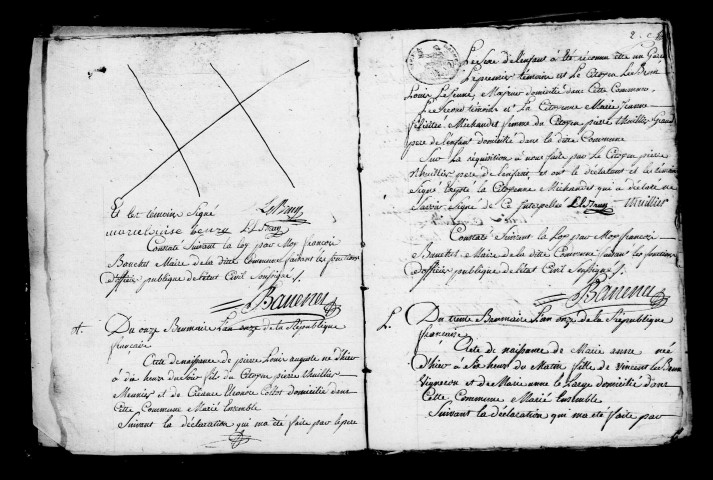 Et les témoins Signé
marie louise
Constaté Suivant la loy par Moy françois
Maire de la ditte Commune faisant les fonctions
d'officier publique de l'état Civil Soussigné
Du onze Brumaire L'an onze de la République
francaise
Acte de naissance de pierre Louis auguste né d'hier
à dix heure du soir fils du Citoyen pierre thuillier
Meunier et de Eléonore domicilié dans
Cette Commune Marié Ensemble
Suivant la déclaration qui ma été faite par le pere
2
Le Sexe de l'enfant à été reconnu etre un
Le premier témoin est Le Citoyen
Louis Le Jeune, Majeur domicilié dans Cette Commune
Le Second témoin est La Citoyenne Marie Jeanne
femme du Citoyen pierre thuillier Grand
pere de l'enfant domicilié dans la ditte Commune
Sur la réquisition à nous faite par le Citoyen pierre
thuillier pere de l'enfant, et ont le déclarant et les témoins
Signé Excepté la Citoyenne qui a déclaré ne
Savoir Signé de Ce Interpellé thuillier
Constaté Suivant la Loy par Moy françois
Maire de la ditte Commune faisant les fonctions
d'officier publique de l'état Civil Soussigné
Du trente Brumaire L'an onze de la République
francaise
Acte de naissance de Marie anne née
d'hier à Six heure du Matin fille de Vincent
Vigneron et de Marie anne le Large domicilié dans
Cette Commune Marié Ensemble
Suivant la déclaration qui ma été faite par